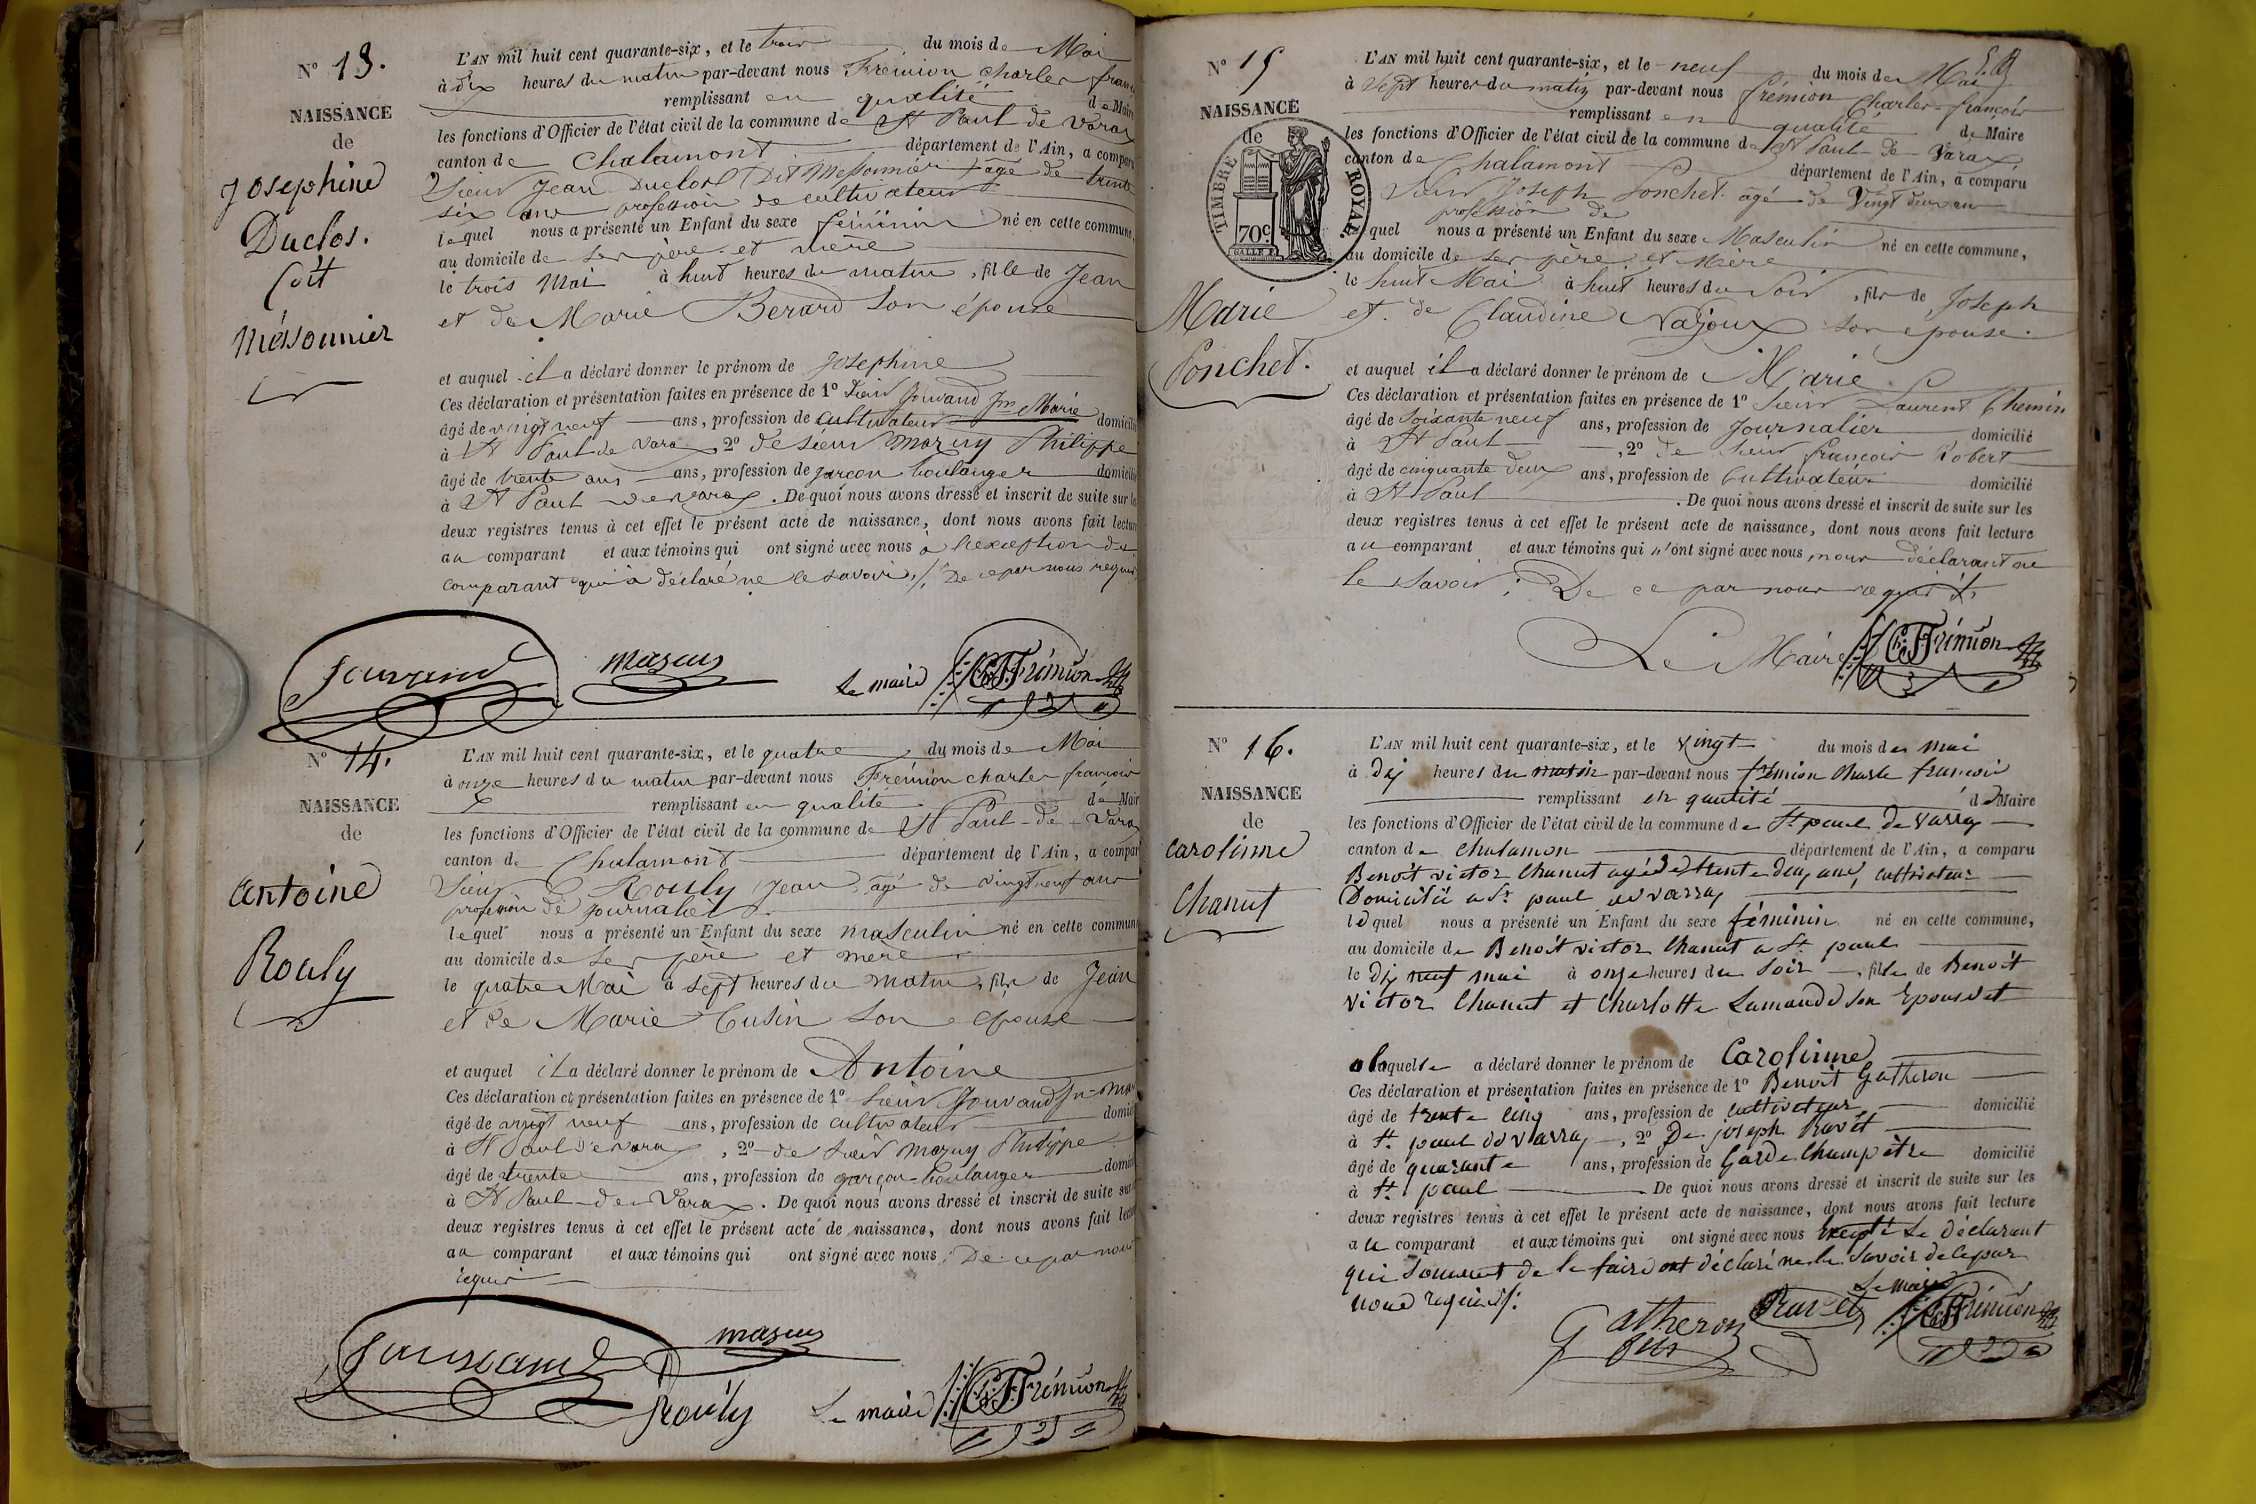 N° 13.
NAISSANCE
de
Josephine
Duclos.
Dit
Méssonnier
L'AN mil huit cent quarante-six, et le trois du mois de Mai
à dix heures du matin par-devant nous Frémion Charles
remplissant en qualité de Maire
les fonctions d'Officier de l'état civil de la commune de St Paul de Varax
canton de Chalamont département de l'Ain, a comparu
Sieur Jean Duclos Dit Messonnier âgé de trente
six ans profession de cultivateur
lequel nous a présenté un Enfant du sexe féminin né en cette commune,
au domicile de ses père et mère
le trois Mai à huit heures du matin, fille de Jean
et de Marie Berard son épouse
et auquel il a déclaré donner le prénom de Josephine
Ces déclaration et présentation faites en présence de 1° Sieur Jouvand Jn Marie
âgé de vingt neuf ans, profession de cultivateur domicilié
à St Paul de Varax 2° de Sieur Mazuy Philippe
âgé de trente ans ans, profession de garçon boulanger domicilié
à St Paul de Varax. De quoi nous avons dressé et inscrit de suite sur les
deux registres tenus à cet effet le présent acte de naissance, dont nous avons fait lecture
au comparant et aux témoins qui ont signé avec nous à l'exception du
comparant qui a déclaré ne le savoir, De ce par nous requis
Jouvand Mazuy Le maire Ch. F. Frémion
N° 14.
NAISSANCE
de
Antoine
Rouly
L'AN mil huit cent quarante-six, et le quatre du mois de Mai
à onze heures du matin par-devant nous Frémion Charles françois
remplissant en qualité de Maire
les fonctions d'Officier de l'état civil de la commune de St Paul de Varax
canton de Chalamont département de l'Ain, a comparu
Sieur Rouly Jean, âgé de vingt neuf ans
profession de journalier
lequel nous a présenté un Enfant du sexe masculin né en cette commune
au domicile de ses père et mère
le quatre Mai à sept heures du matin, fils de Jean
et de Marie Cusin son épouse
et auquel il a déclaré donner le prénom de Antoine
Ces déclaration et présentation faites en présence de 1° Sieur Jouvand Jn Mar
âgé de vingt neuf ans, profession de cultivateur domicilié
à St Paul de Varax, 2° de Sieur Mazuy Philippe
âgé de trente ans, profession de garçon boulanger domicilié
à St Paul de Varax. De quoi nous avons dressé et inscrit de suite sur
deux registres tenus à cet effet le présent acte de naissance, dont nous avons fait lecture
au comparant et aux témoins qui ont signé avec nous. De ce par nous
requis
Jouvand Mazuy
Rouly Le maire Ch. F. Frémion
N° 15
NAISSANCE
de
TIMBRE ROYAL.
70c
Marie
Ponchet.
L'AN mil huit cent quarante-six, et le neuf du mois de Mai
à sept heures du matin par-devant nous frémion Charles françois
remplissant en qualité de Maire
les fonctions d'Officier de l'état civil de la commune de St Paul de Varax
canton de Chalamont département de l'Ain, a comparu
Sieur Joseph Ponchet âgé de Vingt deux an
profession de
lequel nous a présenté un Enfant du sexe Masculin né en cette commune,
au domicile de ses père et Mère
le huit Mai à huit heures du Soir, fils de Joseph
et de Claudine Najoux son épouse.
et auquel il a déclaré donner le prénom de Marie
Ces déclaration et présentation faites en présence de 1° Sieur Laurent Chemin
âgé de soixante neuf ans, profession de journalier domicilié
à St Paul, 2° de Sieur françois Robert
âgé de cinquante deux ans, profession de Cultivateur domicilié
à St Paul. De quoi nous avons dressé et inscrit de suite sur les
deux registres tenus à cet effet le présent acte de naissance, dont nous avons fait lecture
au comparant et aux témoins qui n'ont signé avec nous pour déclarant ne
le savoir: De ce par nous requis
Le Maire Ch. F. Frémion
N° 16.
NAISSANCE
de
Carolinne
Chanut
L'AN mil huit cent quarante-six, et le vingt du mois des mai
à dix heures du matin par-devant nous frémion Charle francois
remplissant en qualité de Maire
les fonctions d'Officier de l'état civil de la commune de St paul de varray
canton de Chalamon département de l'Ain, a comparu
Benoit victor Chanut agé de trente deux ans, cultivateur
Domicilié a St paul de varray
lequel nous a présenté un Enfant du sexe féminin né en cette commune,
au domicile de Benoit victor Chanut a St paul
le dix neuf mai à onze heures du Soir, fille de Benoit
victor Chanut et Charlotte Lamande Son Epouse et
a laquelle a déclaré donner le prénom de Carolinne
Ces déclaration et présentation faites en présence de 1° Benoit Gatheron
âgé de trente cinq ans, profession de cultivateur domicilié
à St paul de varray, 2° De joseph Ravet
âgé de quarante ans, profession de Garde Champêtre domicilié
à St paul. De quoi nous avons dressé et inscrit de suite sur les
deux registres tenus à cet effet le présent acte de naissance, dont nous avons fait lecture
au comparant et aux témoins qui ont signé avec nous Excepté Le déclarant
qui Sommet de le faire ont déclaré ne le Savoir de ce par
nous requis
Le maire
Gatheron Ravet Ch. F. Frémion